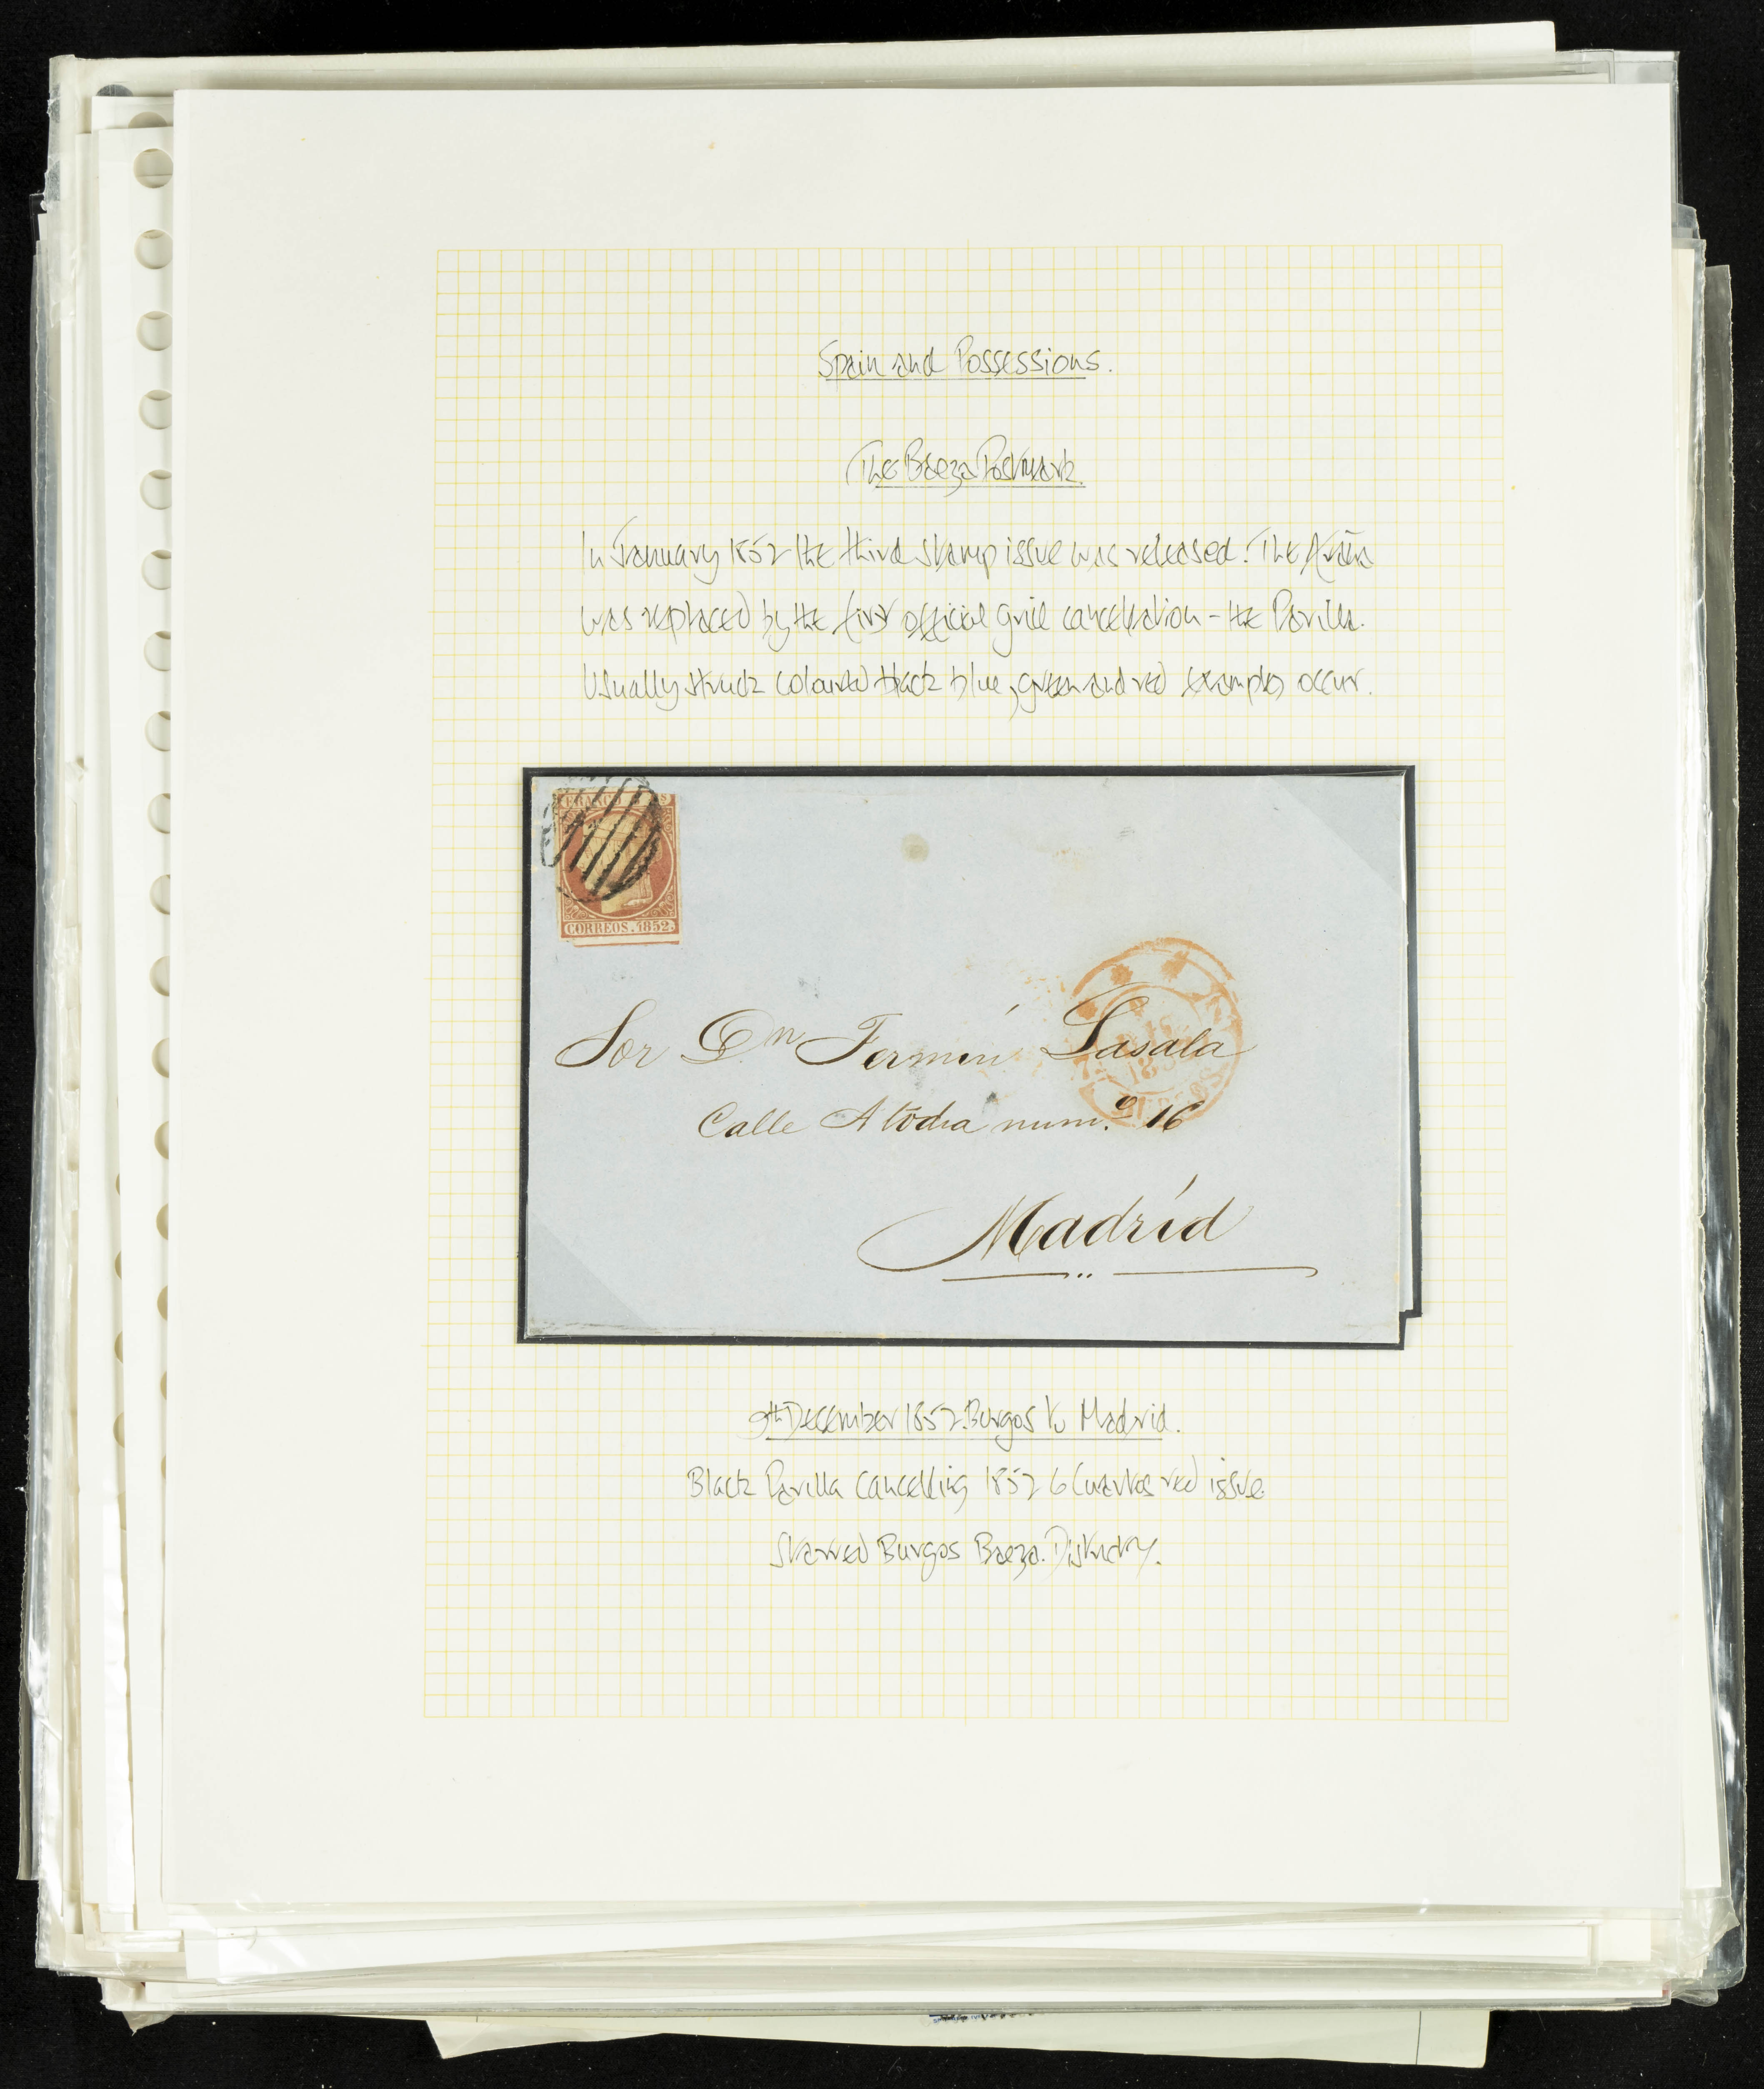 Spain and Possessions.
The Baeza Postmark.
In January 1852 the third stamp issue was released. The Araña
was replaced by the first official grill cancellation - the Parilla.
Usually struck coloured black blue, green and red examples occur.
FRANCO S
CORREOS. 1852.
1852
BURGOS
Sor Dn Fermín Lasala
Calle Atocha num.o 16
Madríd
9th December 1852. Burgos to Madrid.
Black Parilla cancelling 1852 6 Cuartos red issue.
Starred Burgos Baeza.